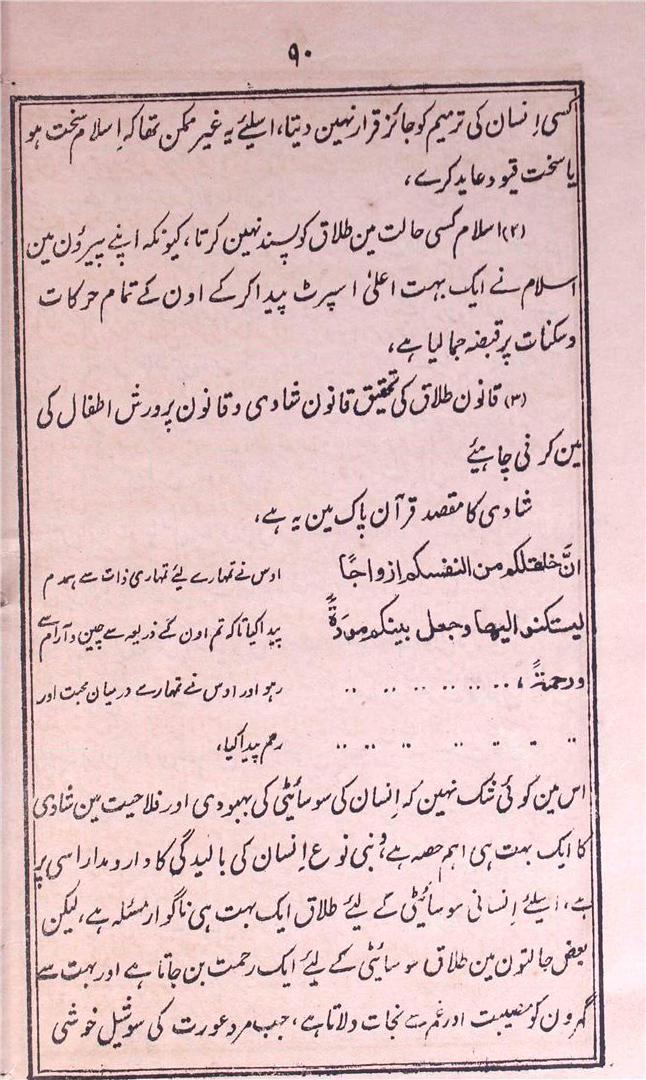 ۹۰
کسی اِنسان کی ترمیم کو جائز قرار نہین دیتا، اسلئے یہ غیر ممکن تھا کہ اِسلام سخت ہو
یا سخت قیود عاید کرے،
(۲) اسلام کسی حالت مین طلاق کو پسند نہین کرتا، کیونکہ اپنے پیرؤن مین
اسلام نے ایک بہت اعلیٰ اسپرٹ پیدا کرکے اون کے تمام حرکات
وسکنات پر قبضہ جما لیا ہے،
(۳) قانون طلاق کی تحقیق قانون شادی و قانون پرورش اطفال کی
مین کرنی چاہیئے
شادی کا مقصد قرآن پاک مین یہ ہے،
انَّ خلقلکم من النفسکم ازواجًا اوس نے تمہارے لئے تمہاری ذات سے ہمدم
لیستکنوا الیھا وجعل بینکم مودۃً پیدا کیا تاکہ تم اون کے ذریعہ سے چین و آرام سے
ورحمۃً، .. .. .. .. .. .. رہو اور اوس نے تمہارے درمیان محبت اور
.. .. .. .. .. .. .. رحم پیدا کیا،
اس مین کوئی شک نہین کہ اِنسان کی سوسائیٹی کی بہبودی اور فلاحیت مین شادی
کا ایک بہت ہی اہم حصہ ہے، بنی نوع اِنسان کی بالیدگی کا دارومدار اسی پر
ہے، اسلئے اِنسانی سوسائیٹی کے لیئے طلاق ایک بہت ہی ناگوار مسئلہ ہے، لیکن
بعض حالتون مین طلاق سوسائیٹی کے لیئے ایک رحمت بن جاتا ہے اور بہت سے
گہرون کو مصیبت اور غم سے نجات دلاتا ہے، جب مرد عورت کی سوشیل خوشی